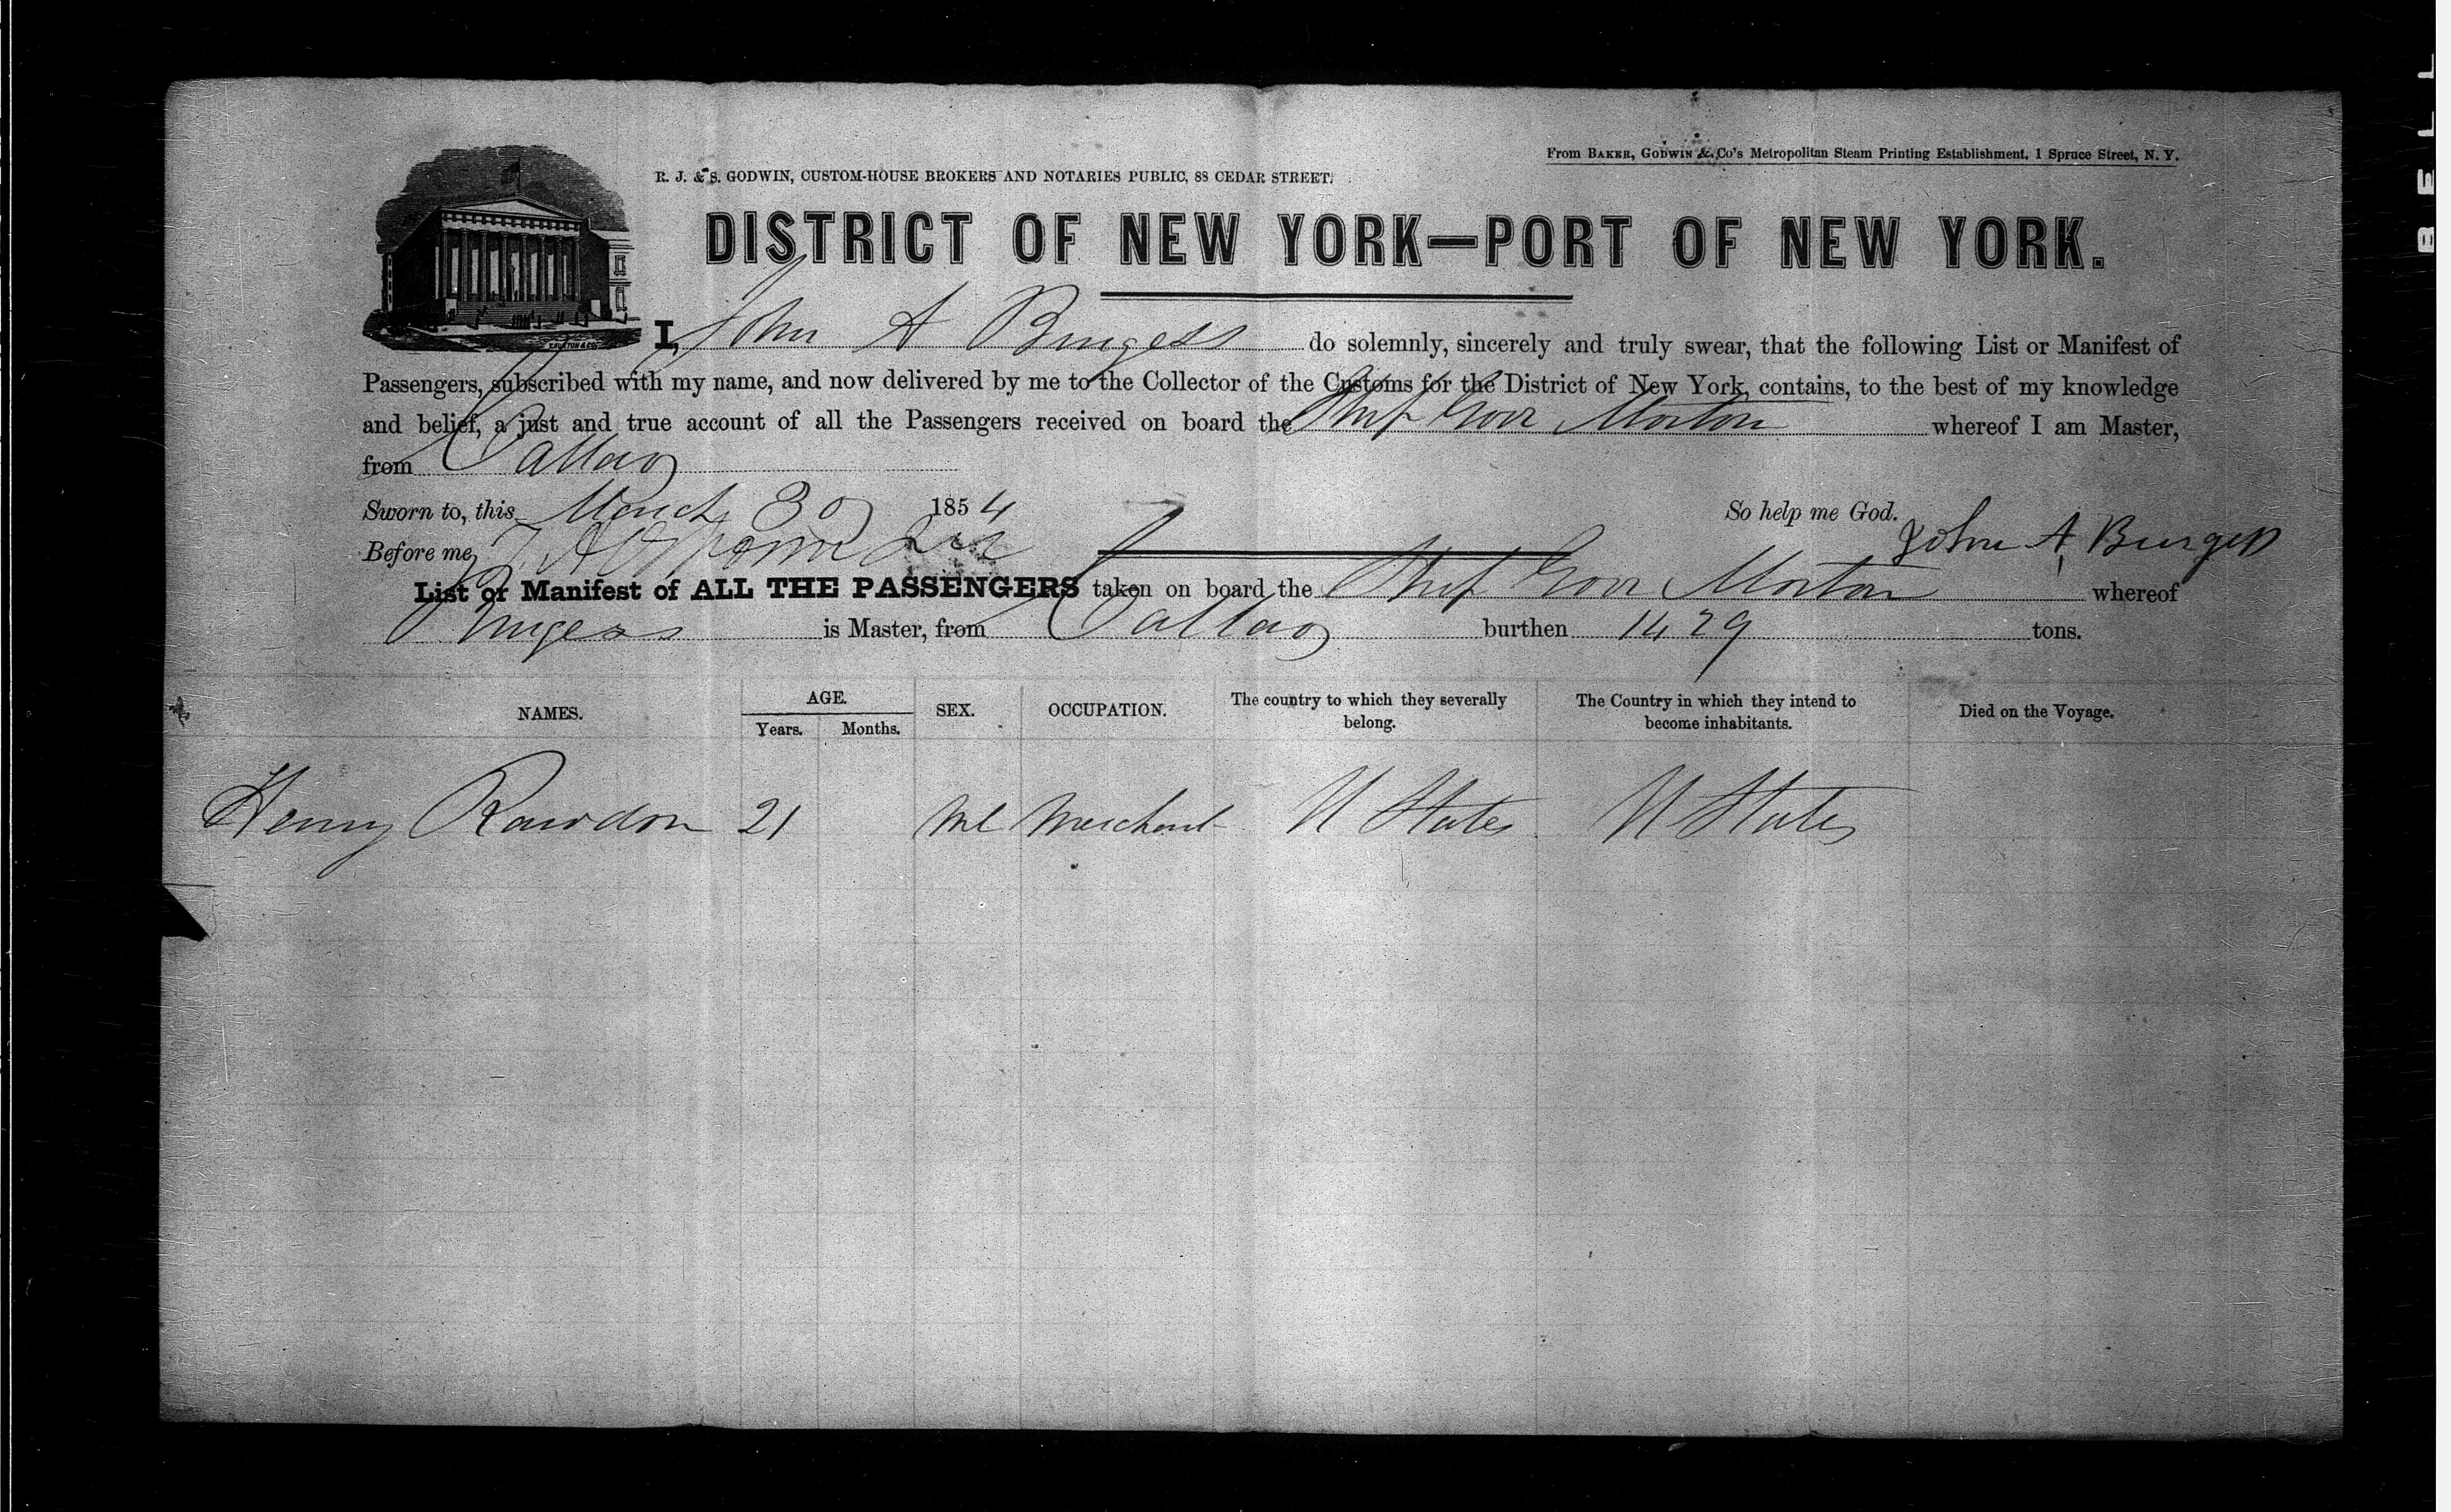 From BAKER, GODWIN & Co's Metropolitan Steam Printing Establishment, 1 Spruce Street, N. Y.
R. J. & S. GODWIN, CUSTOM-HOUSE BROKERS AND NOTARIES PUBLIC, 88 CEDAR STREET.
DISTRICT OF NEW YORK—PORT OF NEW YORK.
I, John A Burgess do solemnly, sincerely and truly swear, that the following List or Manifest of
Passengers, subscribed with my name, and now delivered by me to the Collector of the Customs for the District of New York, contains, to the best of my knowledge
and belief, a just and true account of all the Passengers received on board the Ship Govr Morton whereof I am Master,
from Callao
Sworn to, this March 30 1854 So help me God.
Before me, John A Burgess
List or Manifest of ALL THE PASSENGERS taken on board the Ship Govr Morton whereof
Burgess is Master, from Callao burthen 1429 tons.
NAMES. AGE. Years. Months. SEX. OCCUPATION. The country to which they severally belong. The Country in which they intend to become inhabitants. Died on the Voyage.
Henry Rawdon 21 Ml Merchant U States U States
BELL